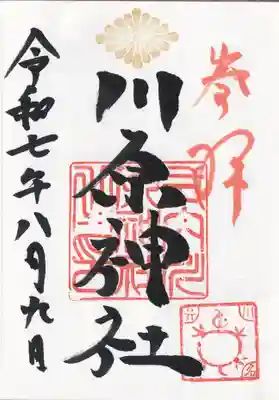 奉拝
川原神社
令和七年八月九日